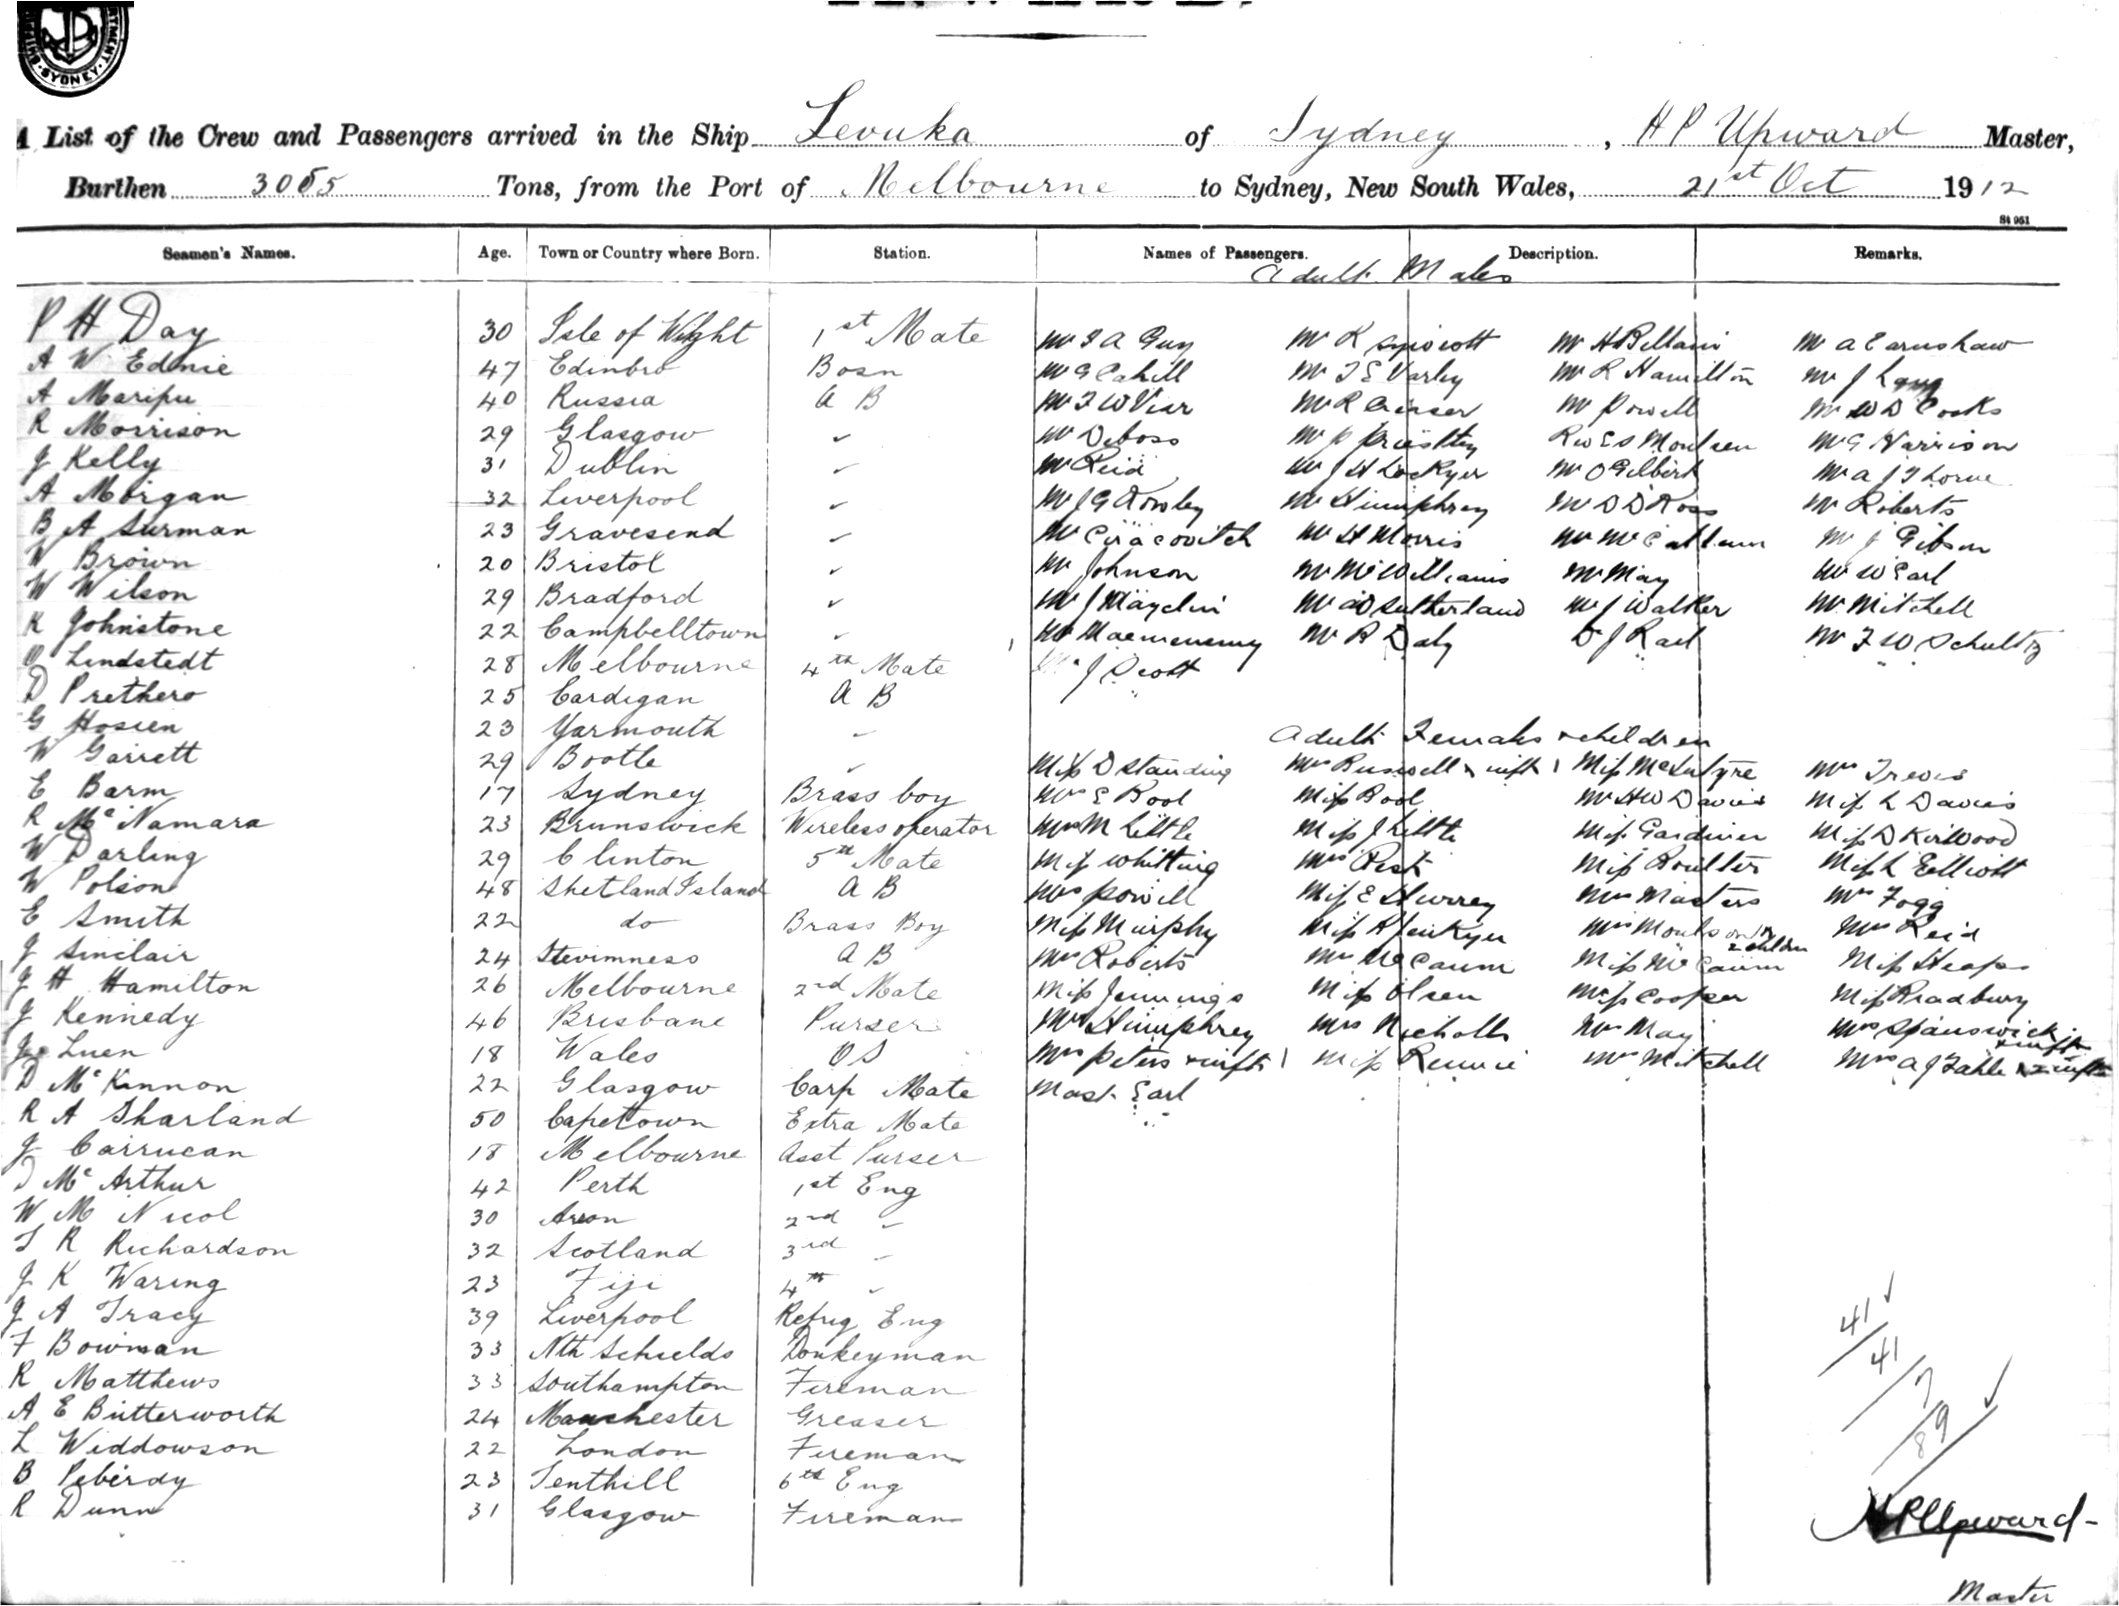 SYDNEY
A List of the Crew and Passengers arrived in the Ship Levuka of Sydney, H P Upward Master,
Burthen 3065 Tons, from the Port of Melbourne to Sydney, New South Wales, 21st Oct 1912
St 951
Seamen's Names. Age. Town or Country where Born. Station. Names of Passengers. Description. Remarks.
Adult Males
P H Day 30 Isle of Wight 1st Mate Mr F A Guy Mr K Mr H Bellairs Mr A Earnshaw
A W Ednie 47 Edinbro Bosn Mr G Cahill Mr T E Varley Mr R Hamilton Mr J Lang
A Maripu 40 Russia A B Mr F W Viar Mr R Mr Powell Mr W D Cocks
R Morrison 29 Glasgow " Mr Deboss Mr P Priestley Rev E S Mr G Harrison
J Kelly 31 Dublin " Mr Reid Mr J H Lockyer Mr O Gilbert Mr A J Thorne
A Morgan 32 Liverpool " Mr J G Rowley Mr Humphrey Mr D D Ross Mr Roberts
B A Surman 23 Gravesend " Mr Ciracovitch Mr H Morris Mr McCallum Mr J Gibson
W Brown 20 Bristol " Mr Johnson Mr McWilliams Mr May Mr W Earl
W Wilson 29 Bradford " Mr J Mr A D Sutherland Mr J Walker Mr Mitchell
K Johnstone 22 Campbelltown " Mr Macmenemy Mr R Daly D J Rail Mr F W Schultz
O Lindstedt 28 Melbourne 4th Mate Mr J Scott
D Prethero 25 Cardigan A B
G Hosien 23 Yarmouth "
Adult Females & children
W Garrett 29 Bootle " Miss D Standing Mrs Russell & inft 1 Miss McIntyre Mrs Trevis
E Barm 17 Sydney Brass boy Mrs E Bool Miss Bool Mrs H W Davies Miss L Davies
R McNamara 23 Brunswick Wireless operator Mrs M Little Miss J Little Miss Gardiner Miss D Kirkwood
W Darling 29 Clinton 5th Mate Miss Whitting Mrs Miss Boulter Miss L Elliott
W Polson 48 Shetland Island A B Mrs Powell Miss E Hurrey Mrs Masters Mrs Fogg
E Smith 22 do Brass Boy Miss Murphy Miss H Mrs & 2 children Mrs Reid
J Sinclair 24 Stevimness A B Mrs Roberts Mrs McCaum Miss McCaum Miss Heaps
J H Hamilton 26 Melbourne 2nd Mate Miss Jennings Miss Olsen Miss Cooper Miss Bradbury
J Kennedy 46 Brisbane Purser Mrs Humphrey Mrs Nicholls Mrs May Mrs Spanswick & inft
J Luen 18 Wales O S Mrs Peters & inft 1 Miss Rennie Mrs Mitchell Mrs A J Fahle & 2 infts
D McKinnon 22 Glasgow Carp Mate Mast. Earl
R A Sharland 50 Capetown Extra Mate
J Carrucan 18 Melbourne Asst Purser
D McArthur 42 Perth 1st Eng
W M Nicol 30 2nd "
T R Richardson 32 Scotland 3rd "
J K Waring 23 Fiji 4th "
J A Tracy 39 Liverpool Refrig Eng
F Bowman 33 Nth Schields Donkeyman
R Matthews 33 Southampton Fireman
A E Butterworth 24 Manchester Greaser
L Widdowson 22 London Fireman
B Peberdy 23 Tenthill 6th Eng
R Dunn 31 Glasgow Fireman
41
41
7
89
H P Upward
Master